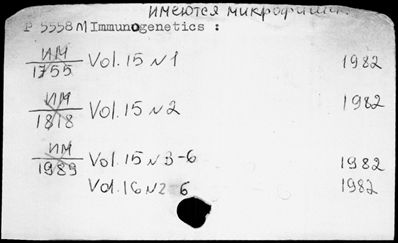 имеются микрофиши.
P 5558 M Immunogenetics :
ИМ
1755 Vol. 15 N 1 1982
ИМ
1818 Vol. 15 N 2 1982
ИМ
1989 Vol. 15 N 3-6 1982
Vol. 16 N 2-6 1982